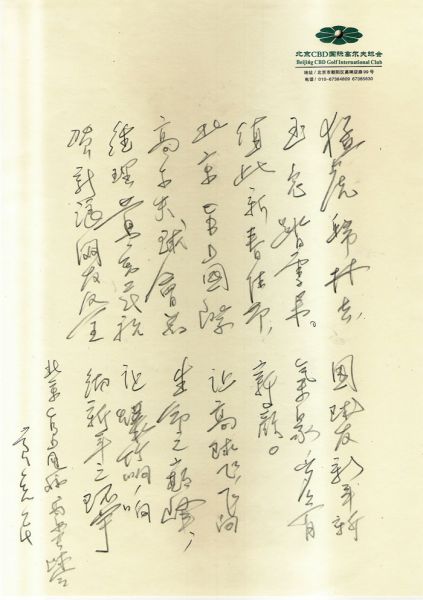 北京CBD国际高尔夫球会
Beijing CBD Golf International Club
地址/北京市朝阳区高碑店路99号
猛虎归林去,
玉兔踏雪来。
值此新春佳节,
北京CBD国际
高尔夫球会总
经理
贺新浪网友及全
国球友新年新
气象,岁岁有
新颜。
让高球飞向
生命之巅峰,
让爆竹响
彻新年之环宇
北京CBD国际高尔夫球会